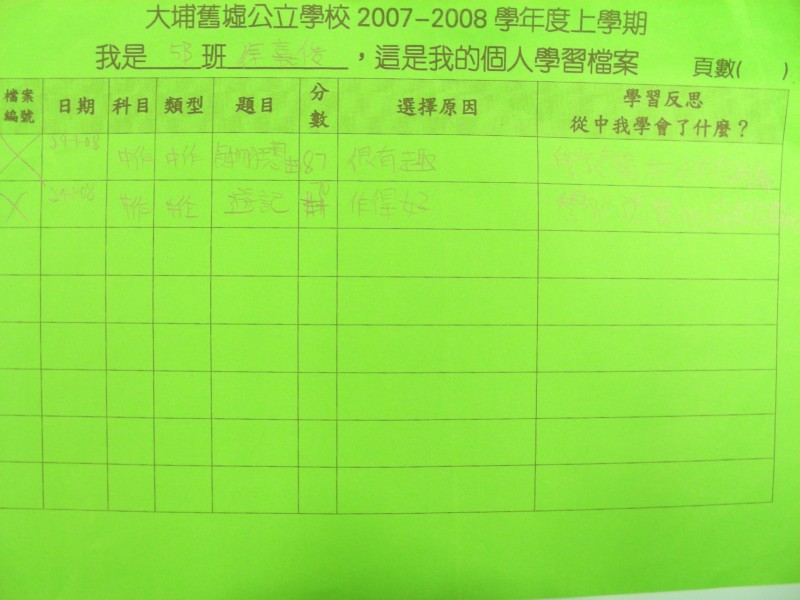 大埔舊墟公立學校 2007-2008 學年度上學期
我是 5B 班 徐嘉俊 ，這是我的個人學習檔案 頁數( )
檔案編號 日期 科目 類型 題目 分數 選擇原因 學習反思 從中我學會了什麼？
29-1-08 中作 中作 87 很有趣
29-1-08 中作 中作 遊記 作得好